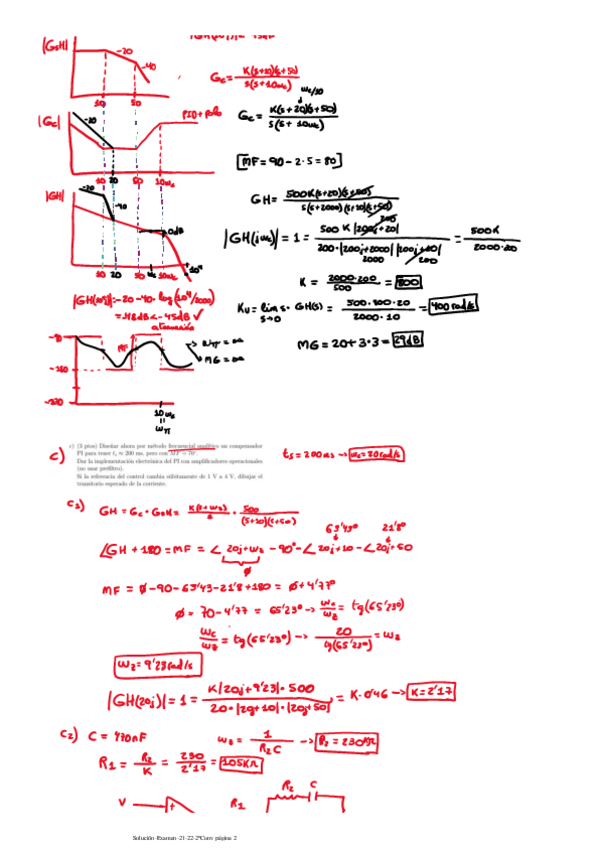 |GsH|
-20
-40
10 50
Gc = K(s+10)(s+50) / s(s+10wc)
wc/10
Gc = K(s+20)(s+50) / s(s+10wc)
|Gc|
-20
PID+Polo
10 20 50 10wc
[MF = 90 - 2·5 = 80]
|GH|
-20
-40
0dB
10 20 50 wc 10wc 10⁴
GH = 500K(s+20)(s+50) / s(s+2000)(s+10)(s+50)
200
|GH(jwc)| = 1 = 500 K |200j+20| / 200·|200j+2000| |200j+10| = 500K / 2000·20
2000 200
K = 2000·200 / 500 = 800
: -20 -40· log(10⁴/2000)
= -48dB < -45dB ✓
Kv = lim s· GH(s) = 500·800·20 / 2000·10 = 400 rad/s
s→0
MG = 20+3·3 = 29dB
-90
MF
-180
-270
MG = ∞
10wc
c) (2 ptos) Diseñar ahora por método frecuencial analítico un compensador
PI para tener ts ≈ 200 ms, pero con MF = 70º.
Dar la implementación electrónica del PI con amplificadores operacionales
(no usar prefiltro).
Si la referencia del control cambia súbitamente de 1 V a 4 V, dibujar el
transitorio esperado de la corriente.
c)
ts = 200ms → wc = 20rad/s
c1)
GH = Gc·GsH = K(s+wz) / s · 500 / (s+10)(s+50)
63'43º 21'8º
∠GH + 180 = MF = ∠20j+wz - 90º - ∠20j+10 - ∠20j+50
ø
MF = ø-90-63'43-21'8+180 = ø+4'77º
ø = 70-4'77 = 65'23º → wc/wz = tg(65'23º)
wc/wz = tg(65'23º) → 20 / tg(65'23º) = wz
wz = 9'23 rad/s
|GH(20j)| = 1 = K|20j+9'23|·500 / 20·|20j+10|·|20j+50| = K·0'46 → K=2'17
c2) C = 470nF
wz = 1 / R2C → R2 = 230KΩ
R1 = R2/K = 230/2'17 = 105KΩ
V
+
R1
R2 C
Solución-Examen-21-22-2ªConv página 2